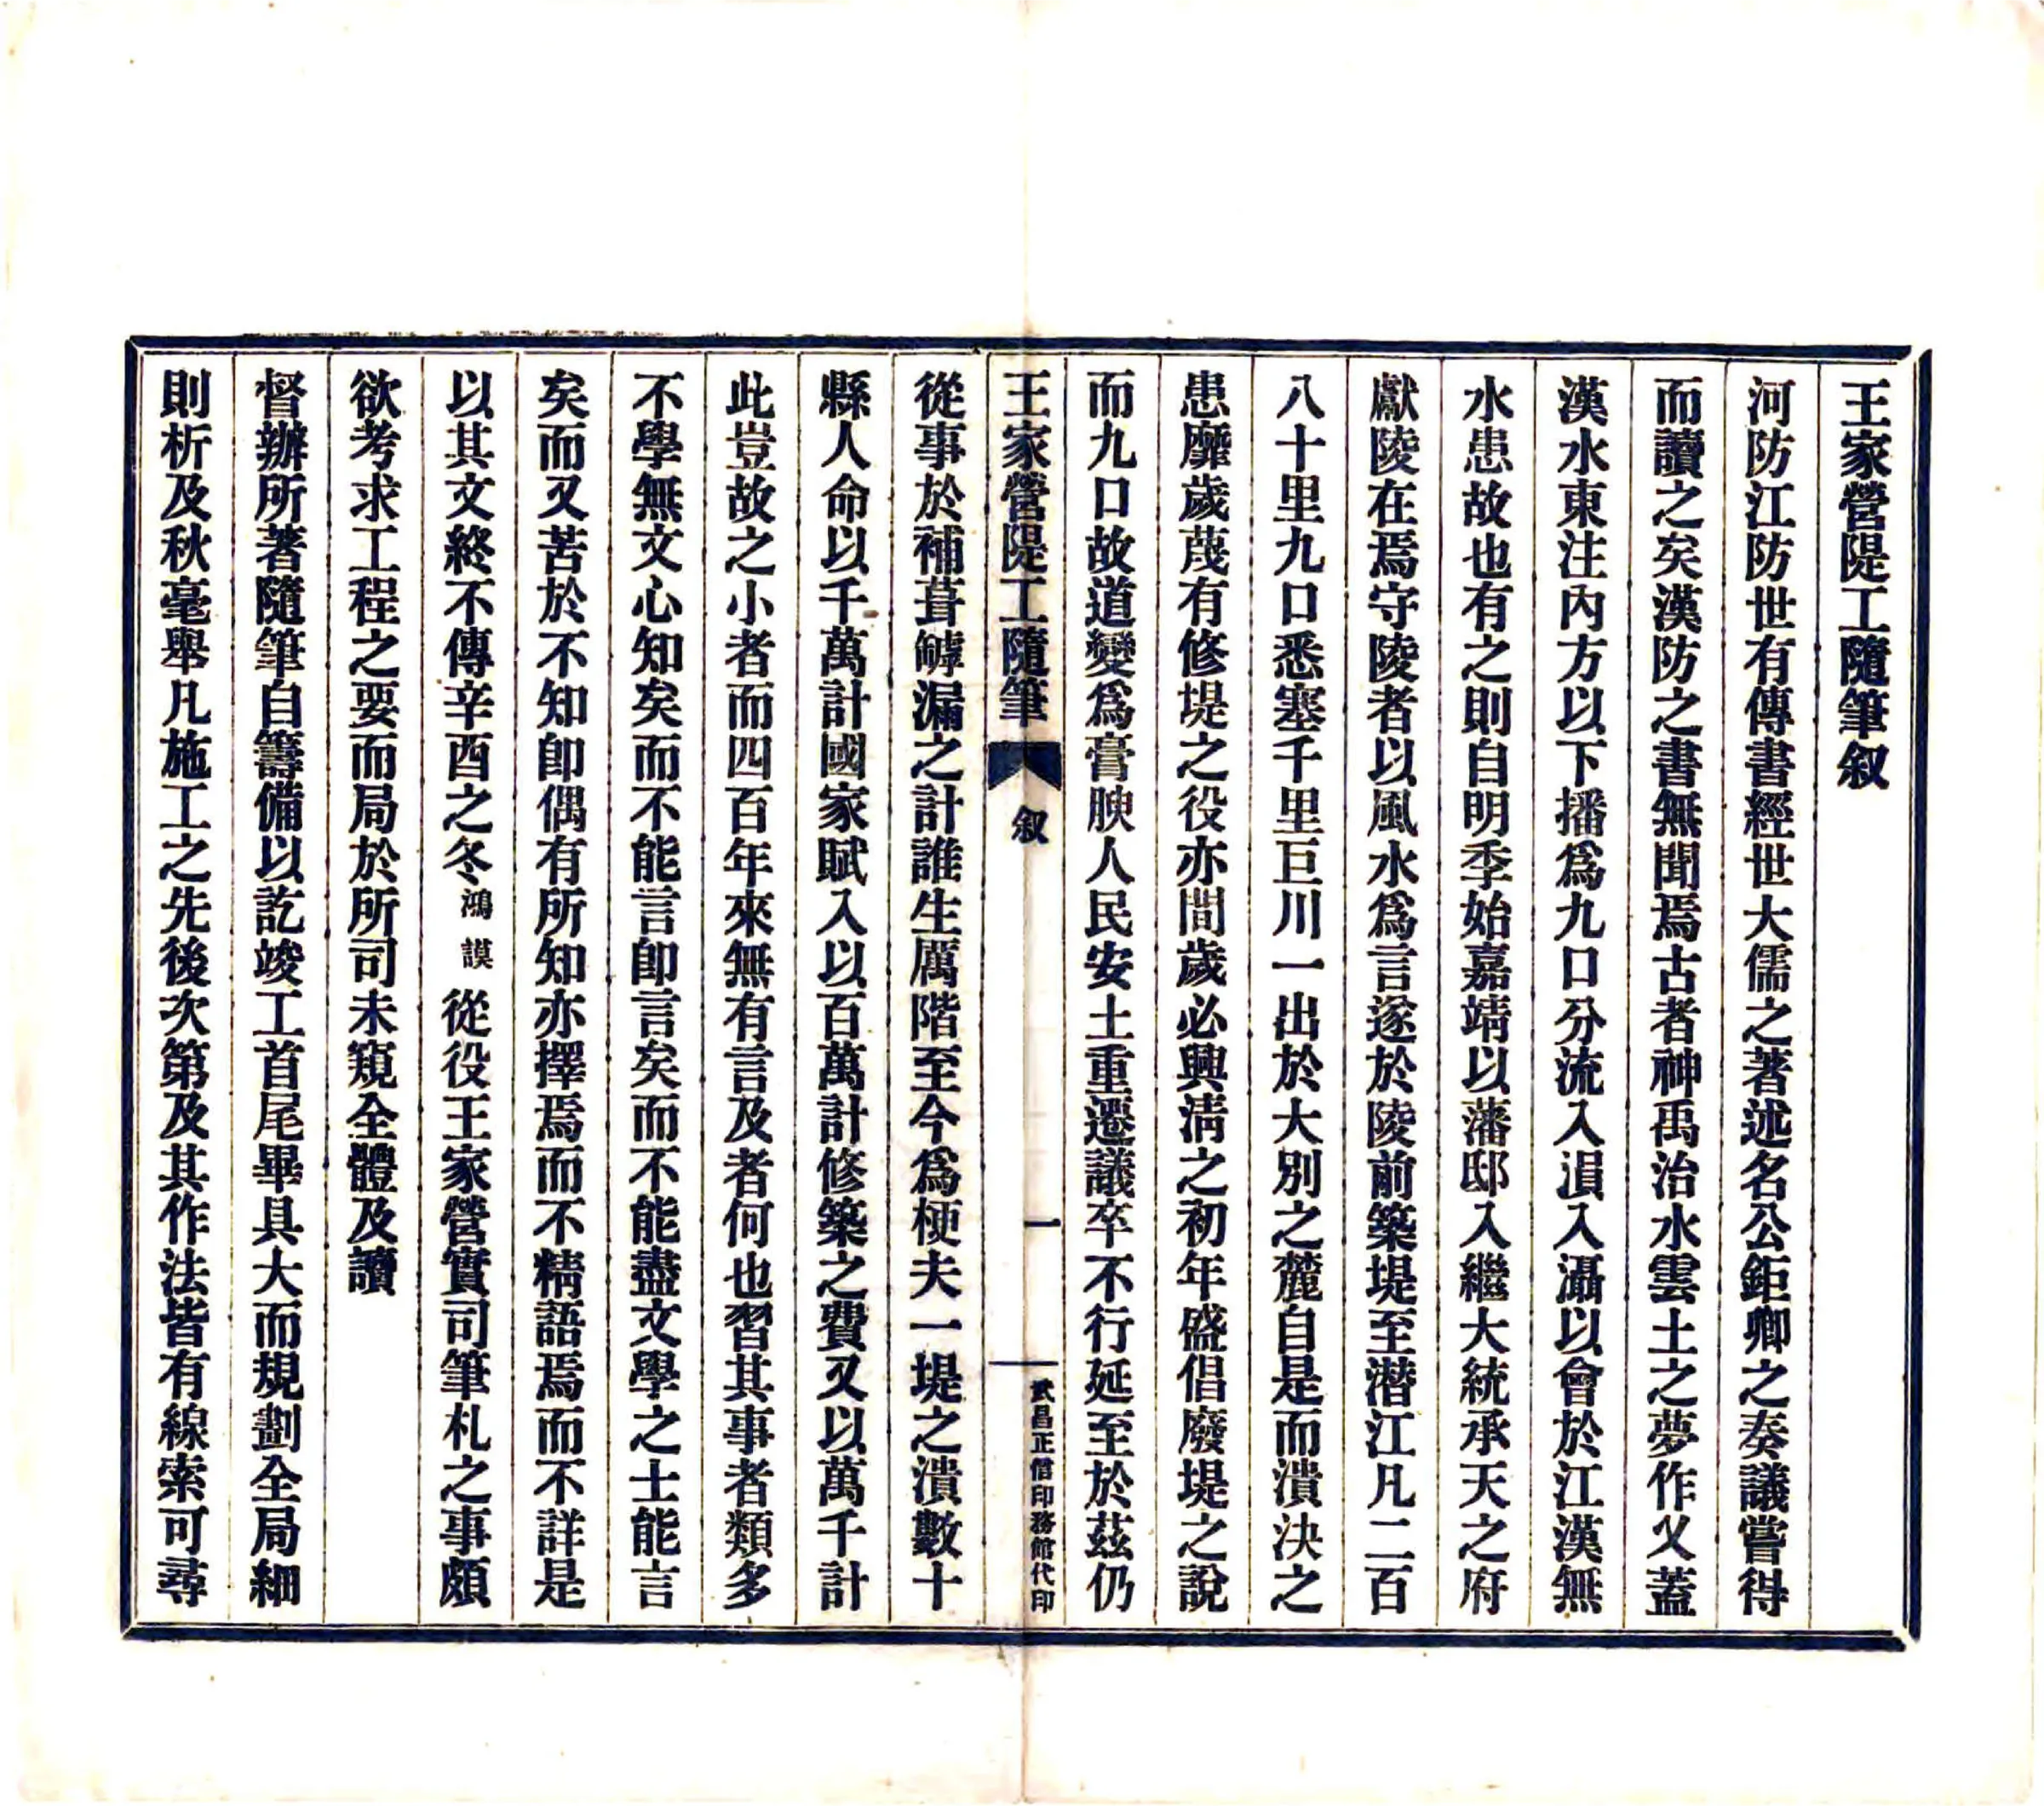 王家營隄工隨筆叙
河防江防世有傳書經世大儒之著述名公鉅卿之奏議嘗得
而讀之矣漢防之書無聞焉古者神禹治水雲土之夢作乂蓋
漢水東注內方以下播爲九口分流入溳入灄以會於江漢無
水患故也有之則自明季始嘉靖以藩邸入繼大統承天之府
獻陵在焉守陵者以風水爲言遂於陵前築堤至潛江凡二百
八十里九口悉塞千里巨川一出於大別之麓自是而潰決之
患靡歲蔑有修堤之役亦間歲必興淸之初年盛倡廢堤之說
而九口故道變爲膏腴人民安土重遷議卒不行延至於茲仍
王家營隄工隨筆 叙 一 武昌正信印務館代印
從事於補葺罅漏之計誰生厲階至今爲梗夫一堤之潰數十
縣人命以千萬計國家賦入以百萬計修築之費又以萬千計
此豈故之小者而四百年來無有言及者何也習其事者類多
不學無文心知矣而不能言卽言矣而不能盡文學之士能言
矣而又苦於不知卽偶有所知亦擇焉而不精語焉而不詳是
以其文終不傳辛酉之冬鴻謨從役王家營實司筆札之事頗
欲考求工程之要而局於所司未窺全體及讀
督辦所著隨筆自籌備以訖竣工首尾畢具大而規劃全局細
則析及秋毫舉凡施工之先後次第及其作法皆有線索可尋